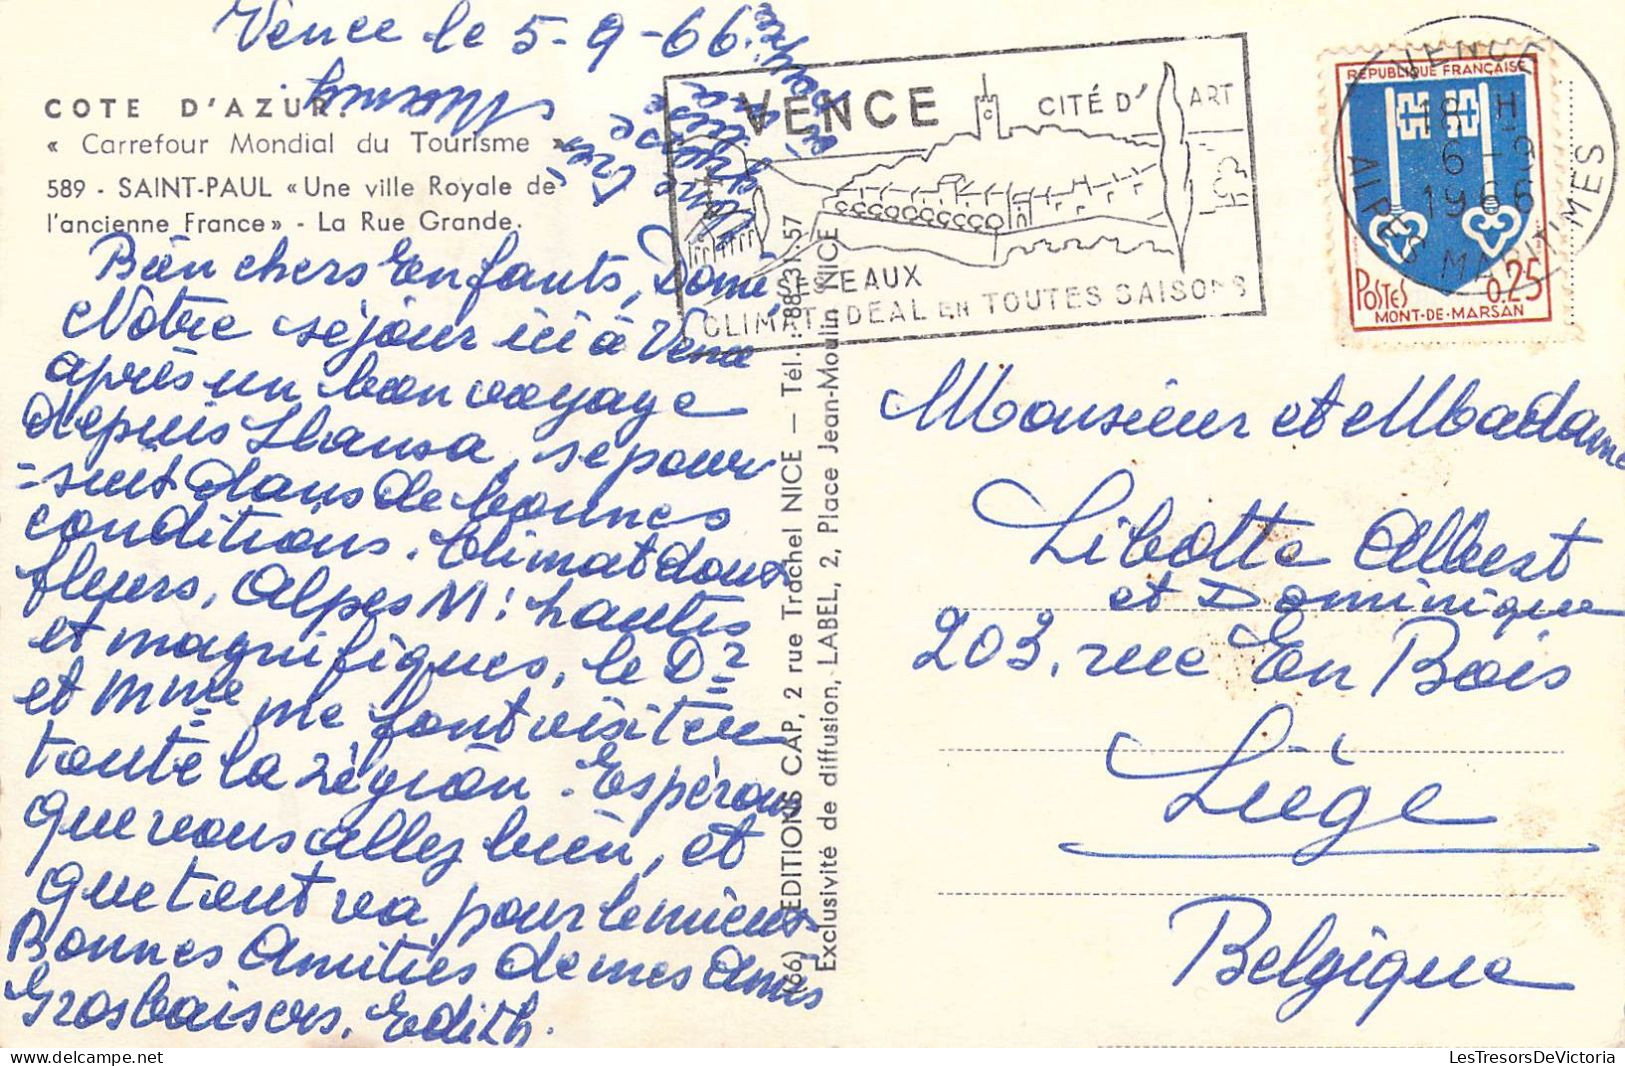 Vence le 5-9-66.
COTE D'AZUR.
« Carrefour Mondial du Tourisme »
589 - SAINT-PAUL «Une ville Royale de
l'ancienne France» - La Rue Grande.
Bien chers Enfants, Domi
Notre séjour ici à Vence
après un bon voyage
depuis Lhansa, se pour
=suit dans de bonnes
conditions. Climat doux
fleurs, Alpes M: hautes
et magnifiques, le Dr
et Mme me font visiter
toute la région. Espérons
que vous allez bien, et
que tout va pour le mieux
Bonnes Amitiés de mes Amis
Gros baisers, Edith.
(66) EDITIONS CAP, 2 rue Trachel NICE — Tél. : 88.31.57
Exclusivité de diffusion, LABEL, 2, Place Jean-Moulin NICE
VENCE CITÉ D'ART
SES EAUX
CLIMAT IDEAL EN TOUTES SAISONS
VENCE
18 H
6 - 9
1966
ALPES MARIT'MES
REPUBLIQUE FRANÇAISE
POSTES 0,25
MONT-DE-MARSAN
Monsieur et Madame
Libotte Albert
et Dominique
203, rue En Bois
Liège
Belgique
LesTresorsDeVictoria